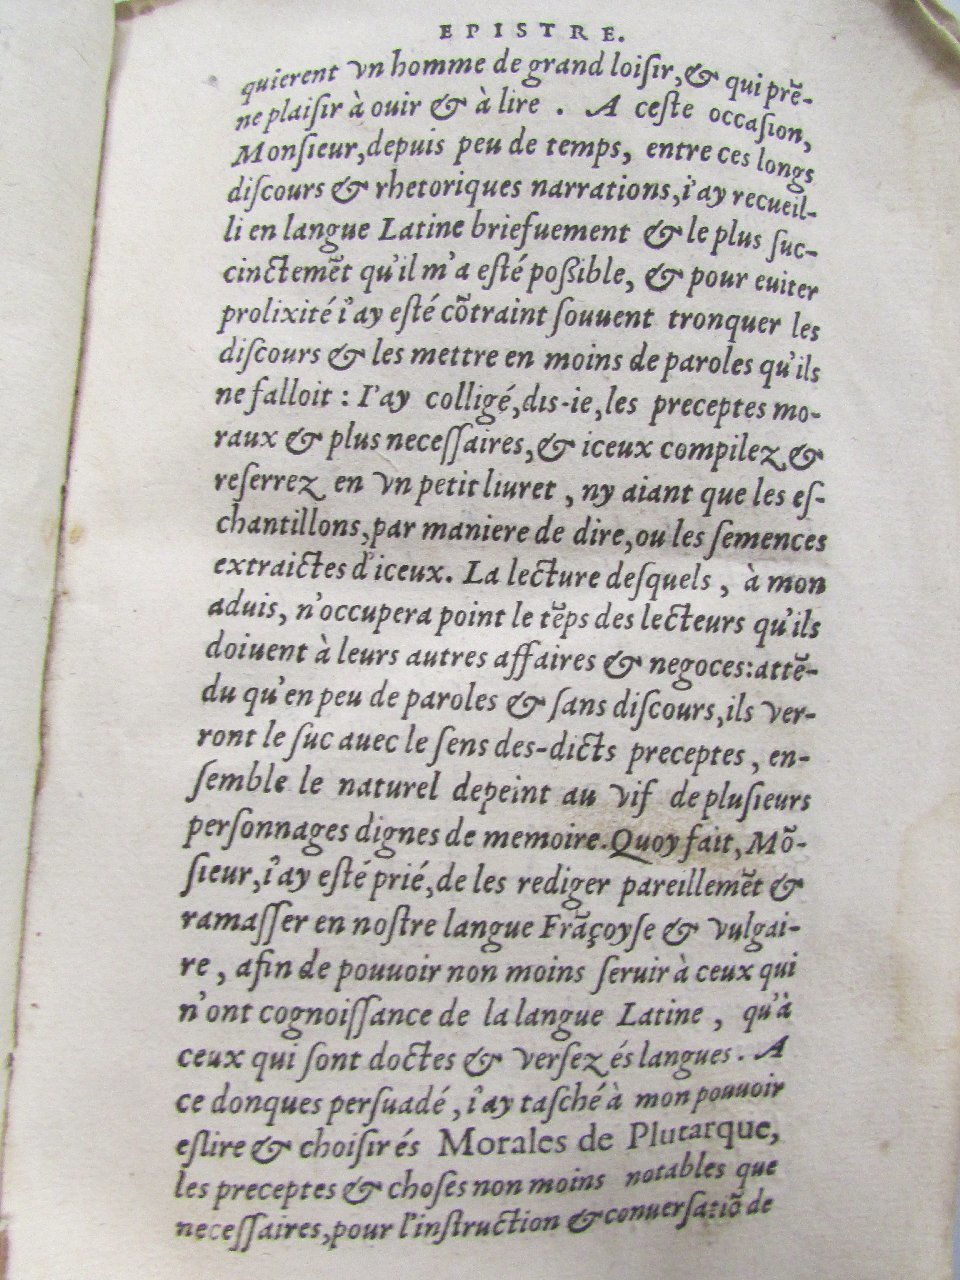 EPISTRE.
quierent vn homme de grand loiſir, & qui prē-
ne plaiſir à ouir & à lire . A ceſte occaſion,
Monſieur, depuis peu de temps, entre ces longs
diſcours & rhetoriques narrations, i'ay recueil-
li en langue Latine briefuement & le plus ſuc-
cinctemēt qu'il m'a eſté poßible, & pour euiter
prolixité i'ay eſté cōtraint ſouuent tronquer les
diſcours & les mettre en moins de paroles qu'ils
ne falloit : I'ay colligé, dis-ie, les preceptes mo-
raux & plus neceſſaires, & iceux compilez &
reſerrez en vn petit liuret , ny aiant que les eſ-
chantillons, par maniere de dire, ou les ſemences
extraictes d'iceux. La lecture deſquels , à mon
aduis, n'occupera point le tēps des lecteurs qu'ils
doiuent à leurs autres affaires & negoces: attē-
du qu'en peu de paroles & ſans diſcours, ils ver-
ront le ſuc auec le ſens des-dicts preceptes , en-
ſemble le naturel depeint au vif de pluſieurs
perſonnages dignes de memoire. Quoy fait, Mō-
ſieur, i'ay eſté prié, de les rediger pareillemēt &
ramaſſer en noſtre langue Frāçoyſe & vulgai-
re , afin de pouuoir non moins ſeruir à ceux qui
n'ont cognoiſſance de la langue Latine , qu'à
ceux qui ſont doctes & verſez és langues . A
ce donques perſuadé , i'ay taſché à mon pouuoir
eſlire & choiſir és Morales de Plutarque,
les preceptes & choſes non moins notables que
neceſſaires, pour l'inſtruction & conuerſatiō de